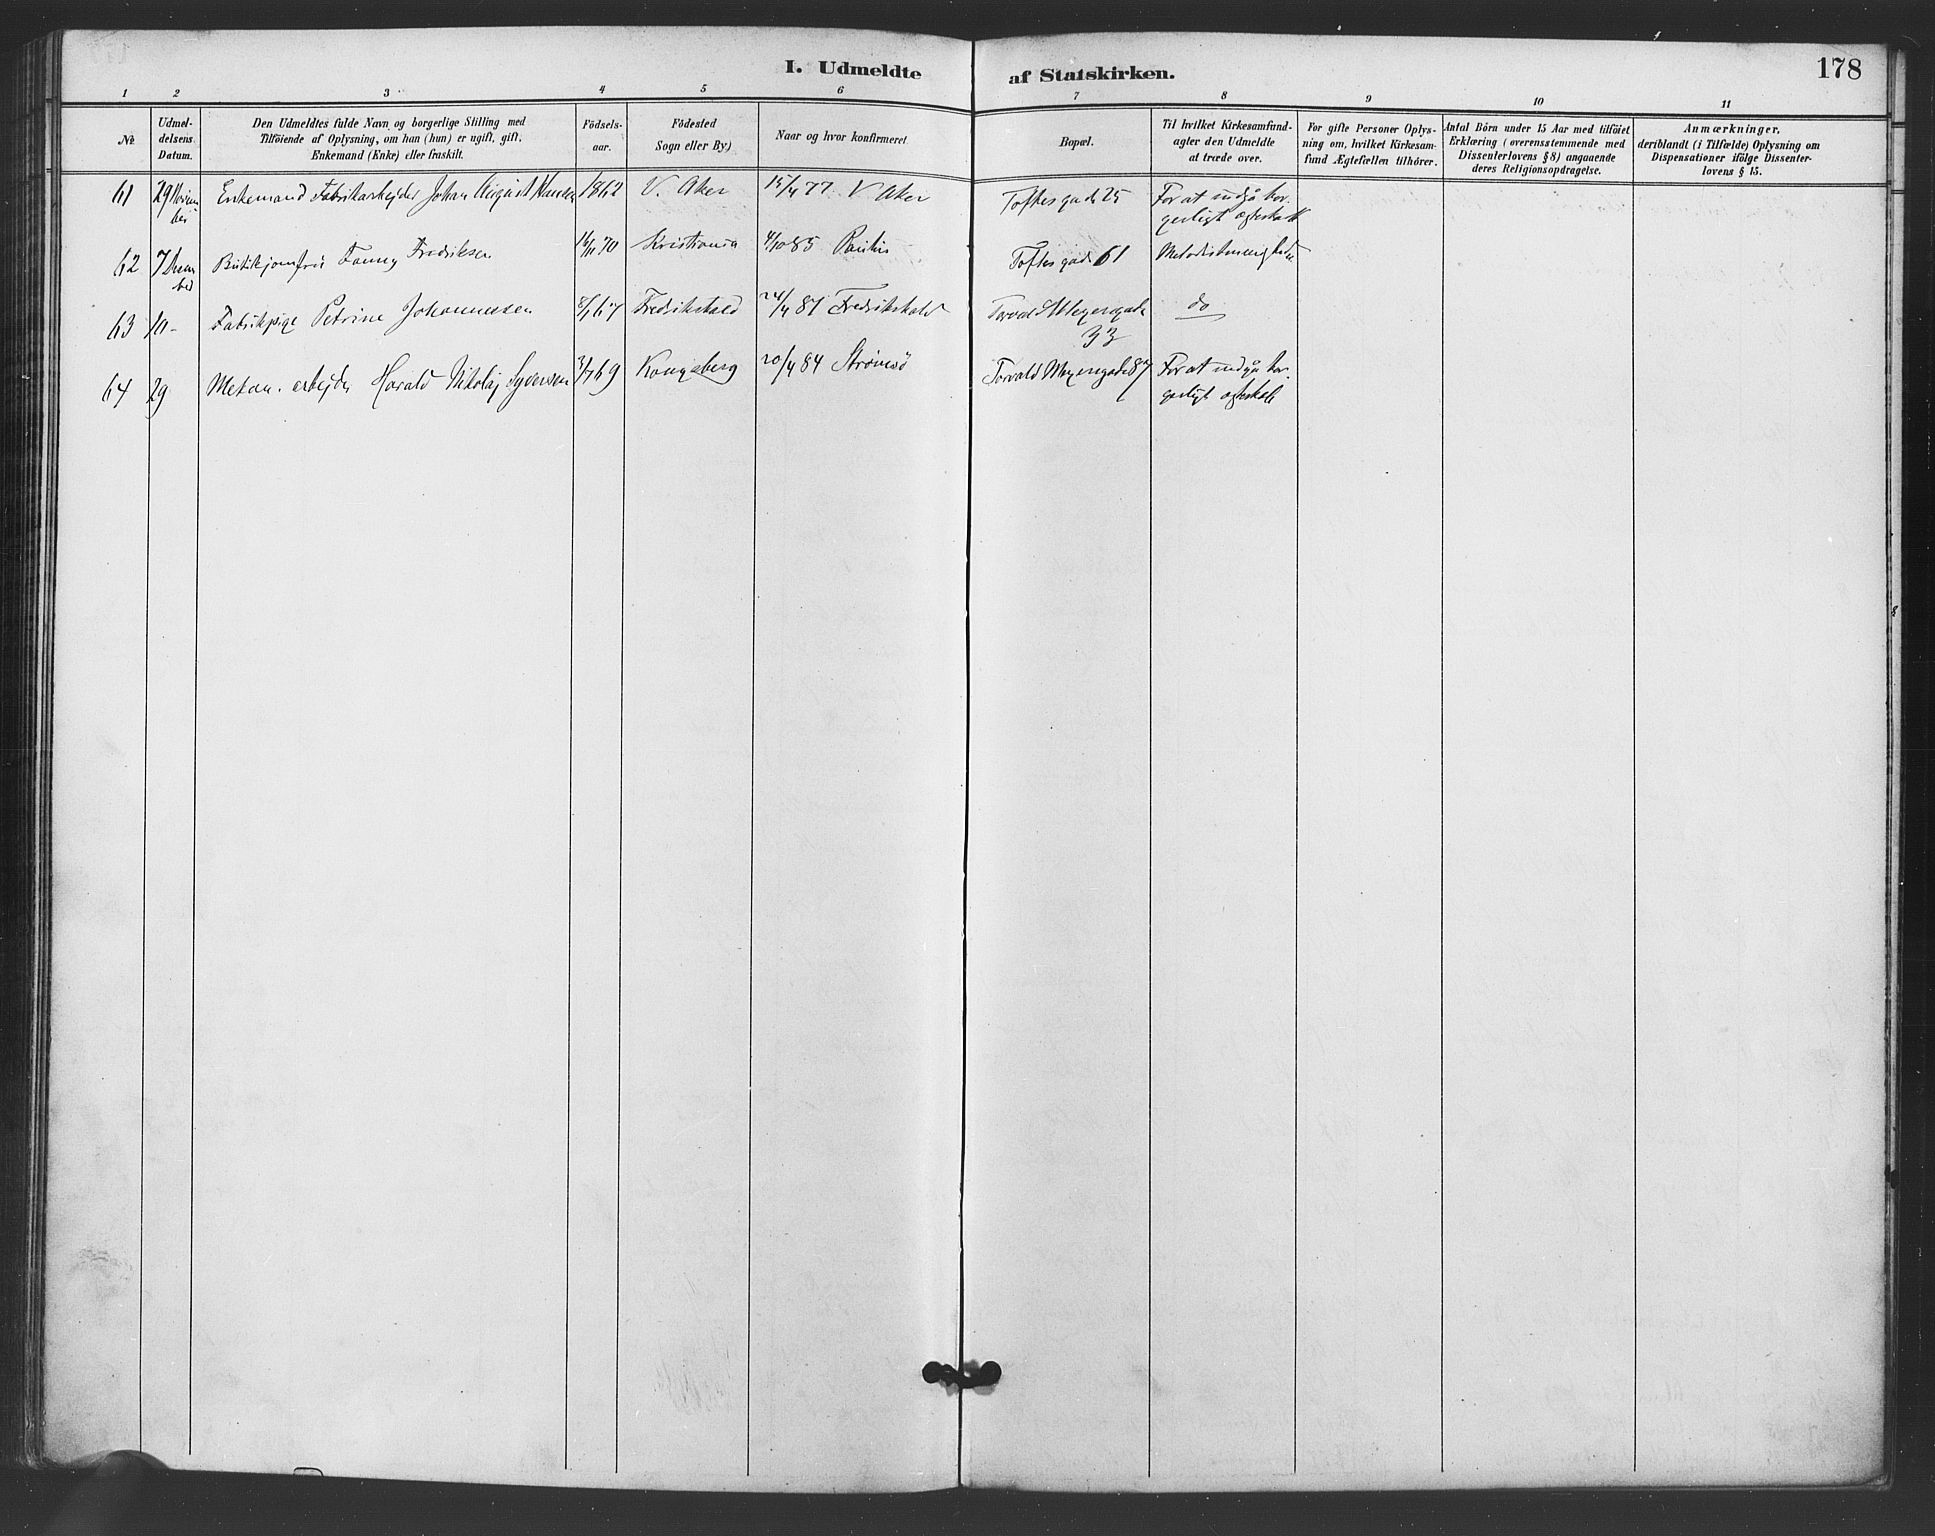 I. Udmeldte af Statskirken.
178
1 2 3 4 5 6 7 8 9 10 11
№
Udmel-
delsens
Datum.
Den Udmeldtes fulde Navn og borgerlige Stilling med
Tilføiende af Oplysning, om han (hun) er ugift, gift,
Enkemand (Enke) eller fraskilt.
Födsels-
aar.
Födested
Sogn eller By)
Naar og hvor konfirmeret
Bopæl.
Til hvilket Kirkesamfund-
agter den Udmeldte
at træde over.
For gifte Personer Oplys-
ning om, hvilket Kirkesam-
fund Ægtefællen tilhører.
Antal Börn under 15 Aar med tilföiet
Erklæring (overensstemmende med
Dissenterlovens §8) angaaende
deres Religionsopdragelse.
Anmærkninger,
deriblandt (i Tilfælde) Oplysning om
Dispensationer ifölge Dissenter-
lovens § 15.
61 29 Novem Enkemand Fabrikarbejder Johan August Hansen 1862 V. Aker 15/4 77 V Aker Toftesgade 25 For at indgå bor-
ber gerligt ægteskab
62 7 Decem Butikjomfru Fanny Fredriksen 16/11 70 Kristiania 4/10 85 Paulus Toftesgade 61 Metodistmenigheden
ber
63 10 - Fabrikpige Petrine Johannessen 8/1 67 Fredrikshald 24/4 81 Fredrikshald Torvald Meyersgade do
33
64 29 Mekan. arbejder Harald Nikolaj Syversen 3/7 69 Kongsberg 20/4 84 Strømsö Torvald Meyersgade 87 For at indgå bor-
gerligt ægteskab